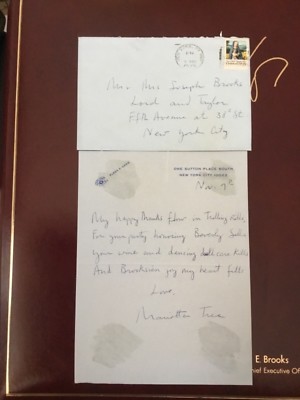 Mr. Mrs Joseph Brooks
Lord and Taylor
Fifth Avenue at 38th St
New York City
ONE SUTTON PLACE SOUTH
NEW YORK CITY 10022
My happy thanks flow in
For your party honoring Beverly Sills
Your wine and dancing
And Brooksian joy my heart fills
Love.
Marietta Tree
E. Brooks
hief Executive Of